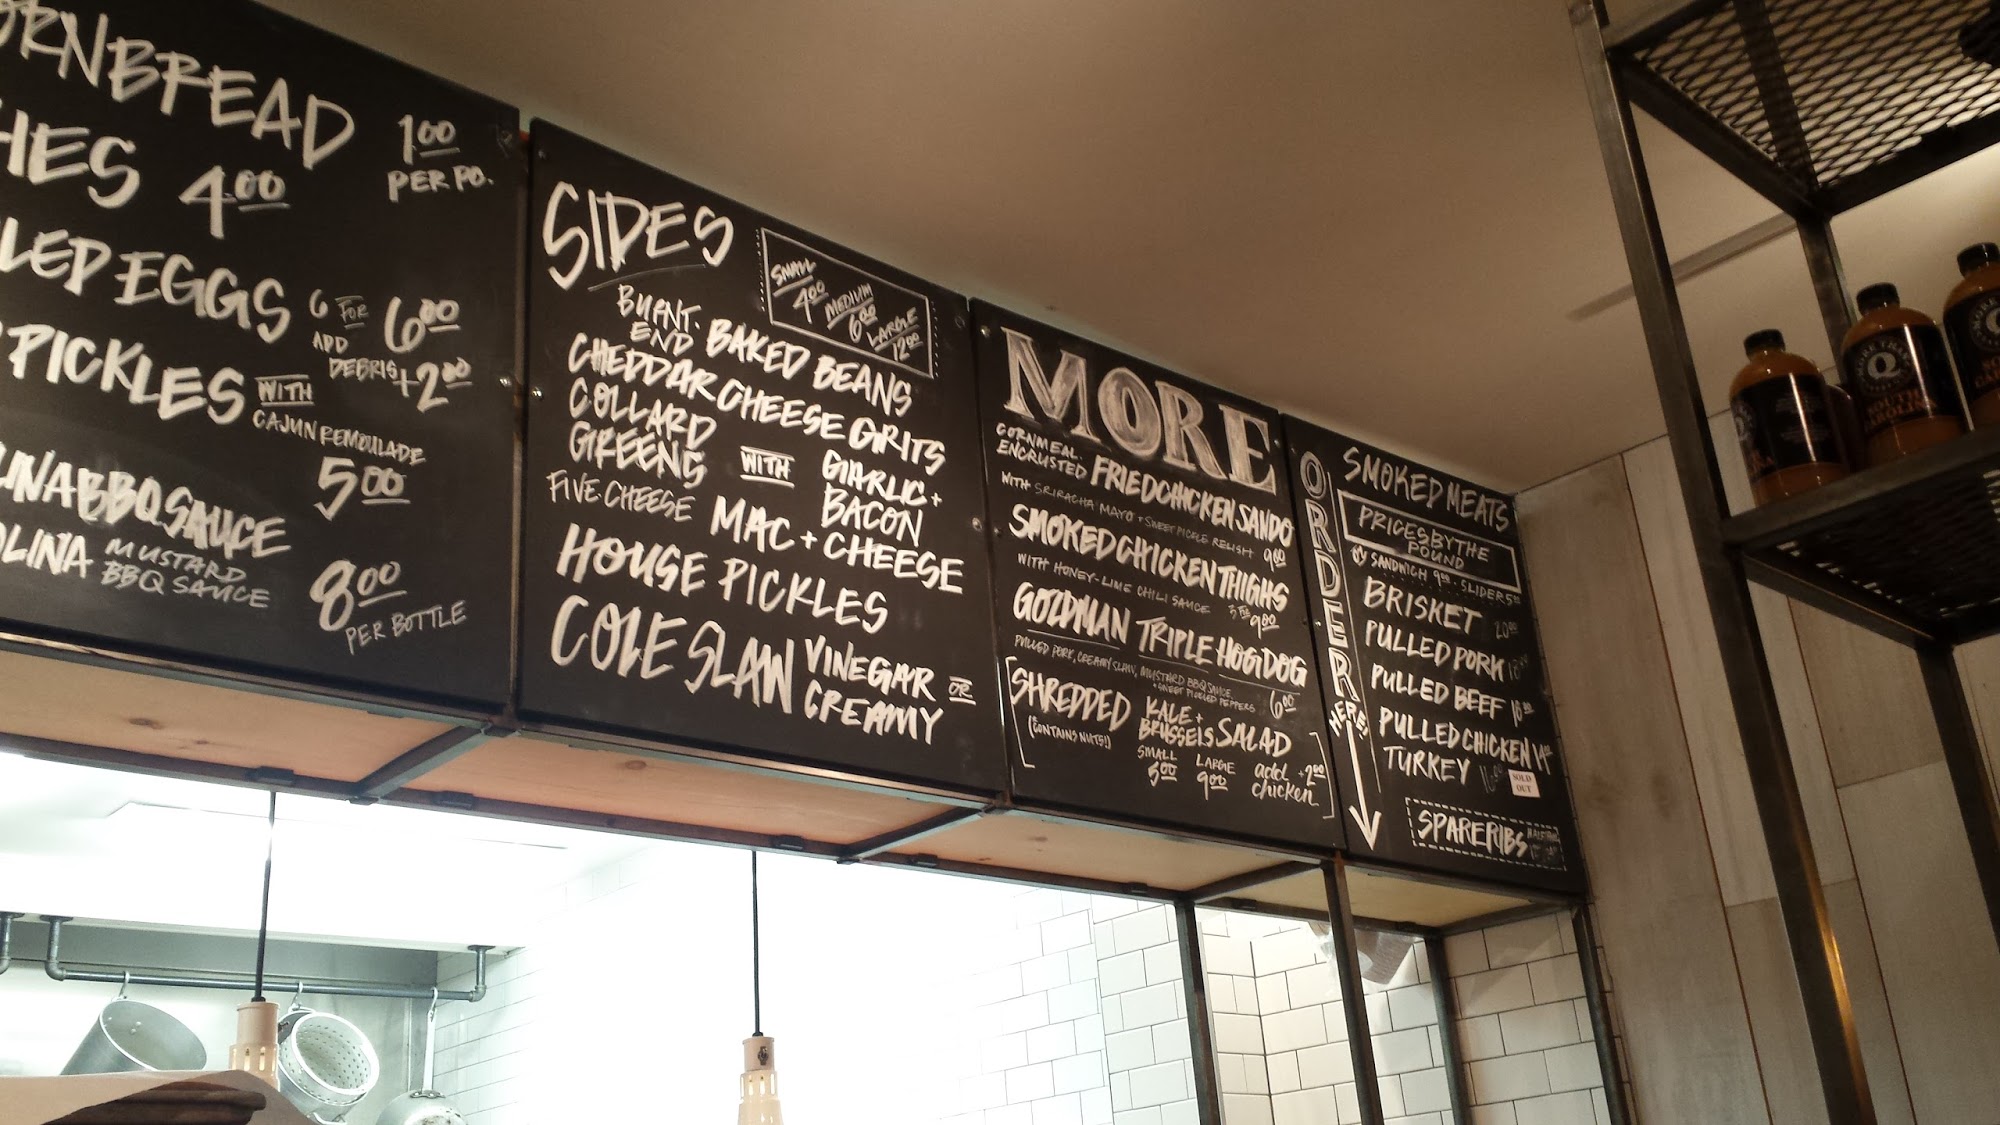 ORNBREAD 1.00
PER PO.
HES 4.00
LED EGGS 6 FOR 6.00
ADD DEBRIS +2.00
PICKLES WITH
CAJUN REMOULADE
5.00
LINA BBQ SAUCE
OLINA MUSTARD BBQ SAUCE
8.00
PER BOTTLE
SIDES
SMALL 4.00 MEDIUM 6.00 LARGE 12.00
BURNT-END BAKED BEANS
CHEDDAR CHEESE GRITS
COLLARD GREENS WITH GARLIC + BACON
FIVE-CHEESE MAC + CHEESE
HOUSE PICKLES
COLE SLAW VINEGAR OR CREAMY
MORE
CORNMEAL-ENCRUSTED FRIED CHICKEN SANDO
WITH SRIRACHA MAYO + SWEET PICKLE RELISH 9.00
SMOKED CHICKEN THIGHS
WITH HONEY-LIME CHILI SAUCE 3 FOR 9.00
GOLDMAN TRIPLE HOG DOG
PULLED PORK, CREAMY SLAW, MUSTARD BBQ SAUCE,
+ SWEET PICKLED PEPPERS 6.00
SHREDDED KALE + BRUSSELS SALAD
(CONTAINS NUTS!)
SMALL 5.00 LARGE 9.00 add chicken +2.00
ORDER HERE!
SMOKED MEATS
PRICES BY THE POUND
SANDWICH 9.00 - SLIDER 5.00
BRISKET 20.00
PULLED PORK
PULLED BEEF 18.00
PULLED CHICKEN 14.00
TURKEY
SOLD OUT
SPARERIBS
MORE THAN Q
SOUTH CAROLINA